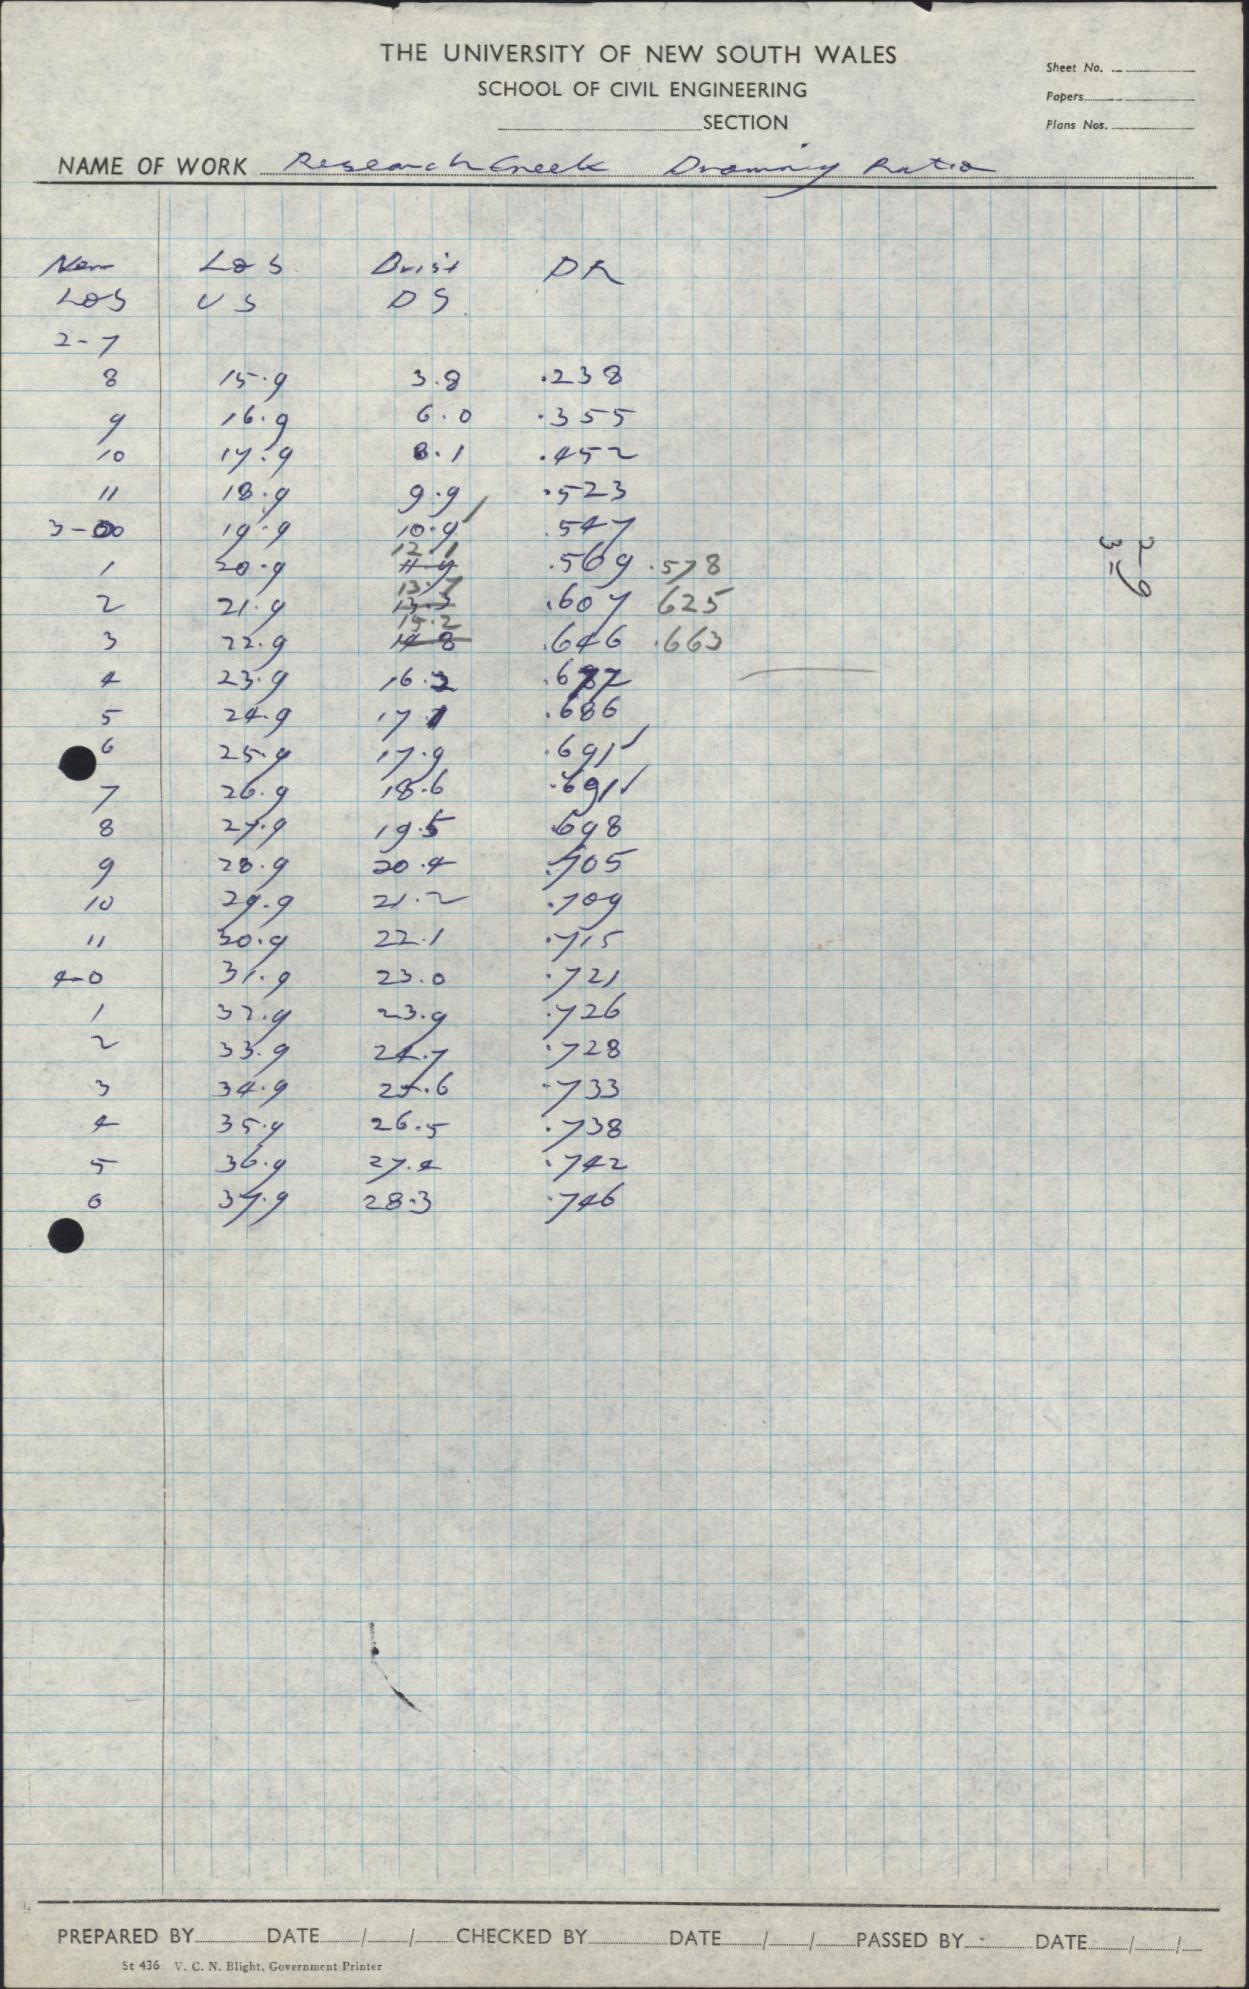 THE UNIVERSITY OF NEW SOUTH WALES
SCHOOL OF CIVIL ENGINEERING
SECTION
Sheet No.
Papers
Plans Nos.
NAME OF WORK Research Creek Drowning Ratio
New LOS Drist DR
LOS US DS
2-7
8 15.9 3.8 .238
9 16.9 6.0 .355
10 17.9 8.1 .452
11 18.9 9.9 .523
3-0 19.9 10.9 .547
12.1
1 20.9 11.9 .569 .578
13.7
2 21.9 13.3 .607 625
15.2
3 22.9 14.8 .646 .663
4 23.9 16.2 .677
5 24.9 17.1 .686
6 25.9 17.9 .691
7 26.9 18.6 .691
8 27.9 19.5 .698
9 28.9 20.4 .705
10 29.9 21.2 .709
11 30.9 22.1 .715
4-0 31.9 23.0 .721
1 32.9 23.9 .726
2 33.9 24.7 .728
3 34.9 25.6 .733
4 35.9 26.5 .738
5 36.9 27.4 .742
6 37.9 28.3 .746
2-9
3-11
PREPARED BY DATE / / CHECKED BY DATE / / PASSED BY DATE / /
St 436 V. C. N. Blight, Government Printer